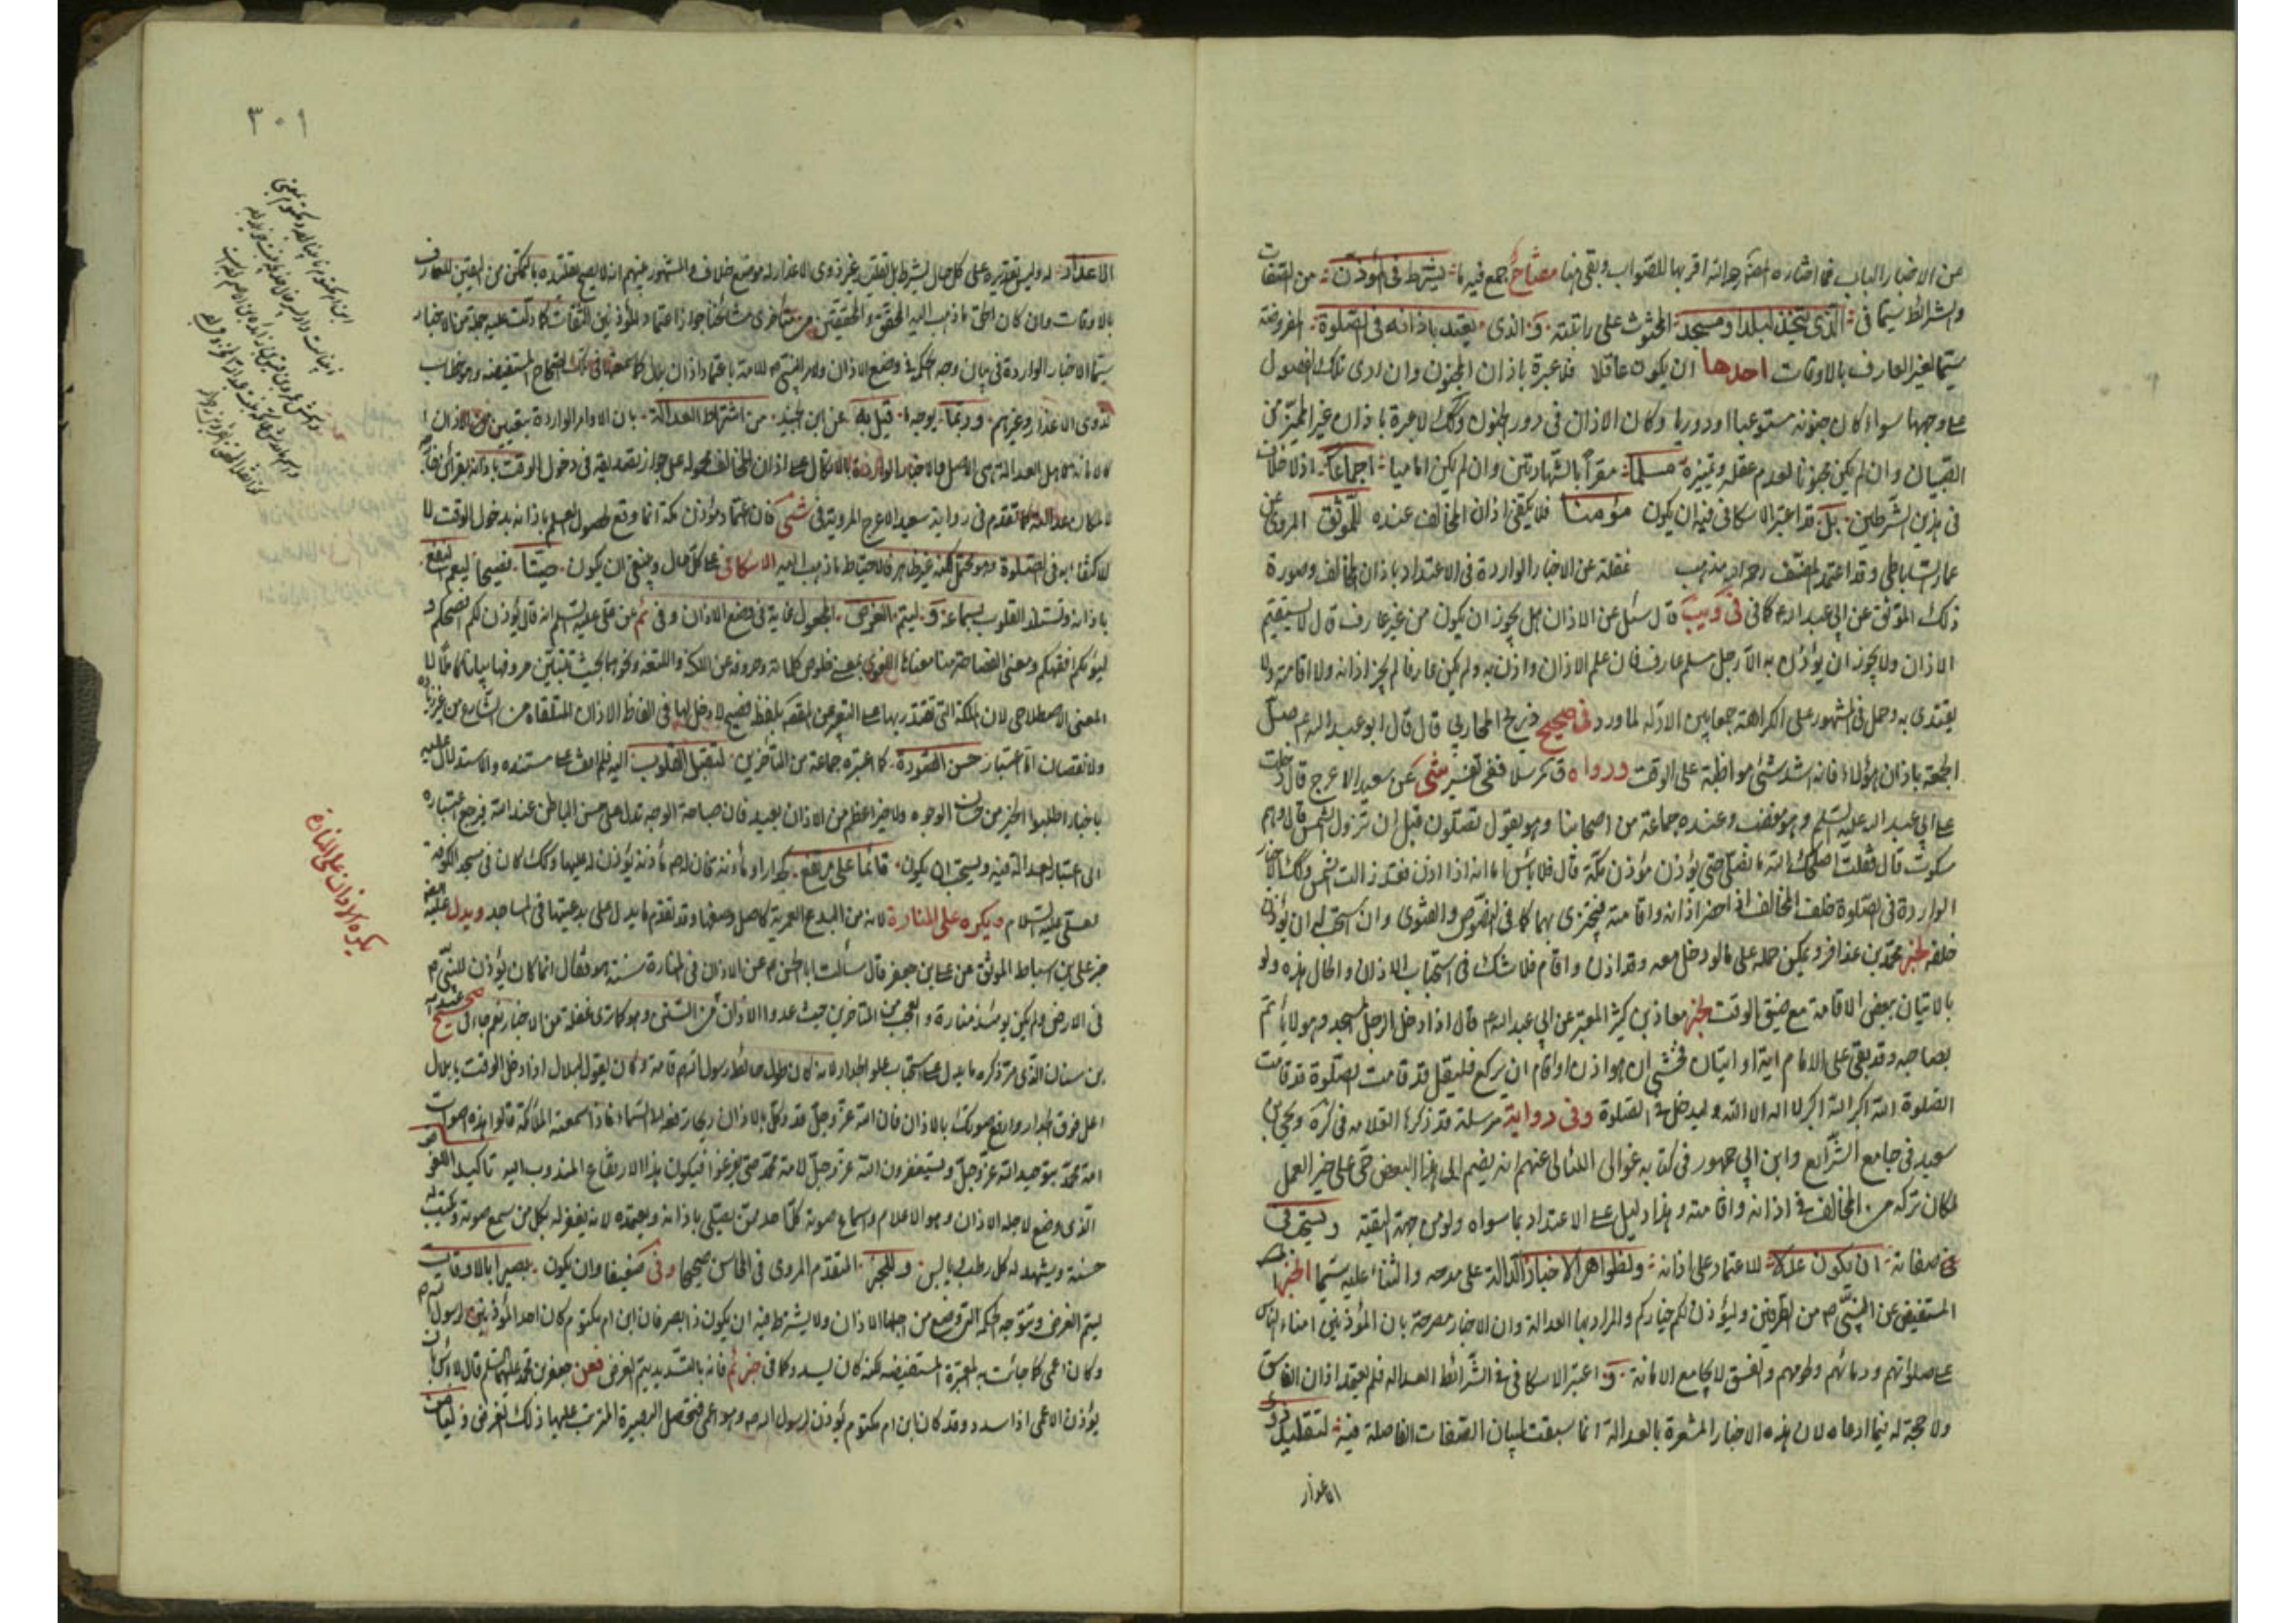 من الاخبار الباب فما اختاره المصنف رحمه الله اقربها للصواب وبقي هنا مفتاح جمع فيه ما يشترط في المؤذن من الصفات
والشرائط سيما في الذي يتخذ لبلد او مسجد المحثوث على راتبته والذي يعتد باذانه في الصلوة المفروضة
سيما لغير العارف بالاوقات احدها ان يكون عاقلا فلا عبرة باذان المجنون وان ادى تلك الفصول
على وجهها سواء كان جنونه مستوعبا او دوريا وكان الاذان في دور الجنون وكذلك لا عبرة باذان غير المميز من
الصبيان وان لم يكن مجنونا لعدم عقله وتميزه مسلما مقرا بالشهادتين وان لم يكن اماميا اجماعا اذ لا خلاف
في هذين الشرطين بل قد اعتبر الاسكافي فيه ان يكون مؤمنا فلا يكتفى اذان المخالف عنده للموثق المروي عن
عمار الساباطي وقد اعتمد المصنف رحمه الله مذهب غفلة عن الاخبار الواردة في الاعتداد باذان المخالف وصورة
ذلك الموثق عن ابي عبد الله ع كما في في ويب قال سئل عن الاذان هل يجوز ان يكون من غير عارف قال لا يستقيم
الاذان ولا يجوز ان يؤذن به الا رجل مسلم عارف فان علم الاذان واذن به ولم يكن عارفا لم يجز اذانه ولا اقامته ولا
يقتدى به وحمل في المشهور على الكراهة جمعا بين الادلة لما ورد في صحيح ذريح المحاربي قال قال ابو عبد الله ع صل
الجمعة باذان هؤلاء فانه اشد شئ مواظبة على الوقت ورواه مرسلا ففي تفسير شي عن سعيد الاعرج قال دخلت
على ابي عبد الله عليه السلم وهو مغضب وعنده جماعة من اصحابنا وهو يقول تصلون قبل ان تزول الشمس قال وهم
سكوت قال فقلت اصلحك الله ما نصلي حتى يؤذن مؤذن مكة قال فلا بأس اما انه اذا اذن فقد زالت الشمس وكذلك الاخبار
الواردة في الصلوة خلف المخالف اذا حضر اذانه واقامته فيجتزى بهما كما في النصوص والفتوى وان استحب له ان يؤذن
خلفه لخبر محمد بن عذافر ويمكن حمله على ما لو دخل معه وقد اذن واقام فلا شك في استحباب الاذان والحال هذه ولو
بالاتيان ببعض الاقامة مع ضيق الوقت لخبر معاذ بن كثير المعتبر عن ابي عبد الله ع قال اذا دخل الرجل المسجد وهو لا يأتم
بصاحبه وقد بقي على الامام اية او ايتان فخشي ان هو اذن او اقام ان يركع فليقل قد قامت الصلوة قد قامت
الصلوة الله اكبر الله اكبر لا اله الا الله وليدخل في الصلوة وفي رواية مرسلة قد ذكرها العلامه في كره ويحيى بن
سعيد في جامع الشرايع وابن ابي جمهور في كتابه غوالى اللئالى عنهم انه يضم الى هذا البعض حي على خير العمل
لمكان تركه من المخالف في اذانه واقامته وهذا دليل على الاعتداد بما سواه ولو من جهة التقية ويستحب في
صفاته ان يكون عدلا للاعتماد على اذانه ولظواهر الاخبار الدالة على مدحه والثناء عليه سيما الخبر
المستفيض عن النبي ص من الطرفين وليؤذن لكم خياركم والمراد بها العدالة وان الاخبار مصرحة بان المؤذنين امناء الناس
على صلوتهم ودمائهم ولحومهم والفسق لا يجامع الامانة واعتبر الاسكافي في الشرائط العدالة فلم يعتد اذان الفاسق
ولا حجة له فيما ادعاه لان هذه الاخبار المشعرة بالعدالة انما سبقت لبيان الصفات الفاضلة فيه لتقليد ذوي
الاعذار
٣٠١
الاعذار له وليس تقديره على كل حال يشترط بل تقليد غير ذوي الاعذار له موضع خلاف والمشهور بينهم انه لا يصح تقليده بالتمكن من اليقين للعارف
بالاوقات وان كان الحق ما ذهب اليه المحقق والمحققين من متأخري مشائخنا جواز اعتماد المؤذنين الثقات كما دلت عليه جملة من الاخبار
سيما الاخبار الواردة في بيان وجه الحكم في وضع الاذان ولامر النبي ص للامة باعتماد اذان بلال كما سمعتها في تلك الصحاح المستفيضة وهو خطاب
لذوى الاعذار وغيرهم وربما يوجه ما قيل به عن ابن الجنيد من اشتراط العدالة بان الاوامر الواردة بتعيين
لمكان عدالته كما تقدم في رواية سعيد الاعرج المروية في شي فان اعتماد مؤذن مكة انما وقع لحصول العلم باذانه بدخول الوقت لا
للاكتفاء به في الصلوة وهو محتمل لكنه غير ظاهر فالاحتياط ما ذهب اليه الاسكافي على كل حال وينبغي ان يكون صيتا فصيحا ليعم النفع
باذانه وتستلذ القلوب بسماعه وليتم الغرض المجعول غاية في وضع الاذان وفي ئم عن علي عليه السلم انه قال يؤذن لكم افصحكم و
ليؤمكم افقهكم ومعنى الفصاحة هنا معناها اللغوي بمعنى خلوص كلماته وحروفه عن اللكنة واللثغة ونحوهما بحيث تتبين حروفها بيانا كاملا لا
المعنى الاصطلاحي لان الملكة التي تقتدر بها على التعبير عن المقصد بلفظ فصيح لا دخل لها في الفاظ الاذان المتلقاه من الشارع من غير زيادة
ولا نقصان اما اعتبار حسن الصورة كما اعتبره جماعة من المتأخرين لتقبل القلوب اليه فلم نقف على مستنده والاستدلال عليه
باخبار اطلبوا الخير من حسان الوجوه ولا خير اعظم من الاذان بعيد فان صباحة الوجه تدل على حسن الباطن عند الله فيرجع اعتباره
الى اعتبار العدالة فيه ويستحب ان يكون قائما على مرتفع جدارا او مأذنة فان لهم مأذنة يؤذن له عليها وكذلك كان في مسجد الكوفة
لعلي عليه السلام ويكره على المنارة لانه من البدع العمرية كاصل وضعها وقد تقدم ما يدل على بدعيتها في المساجد ويدل عليه
خبر علي بن اسباط الموثق عن علي بن جعفر قال سألت ابا الحسن ع عن الاذان في المنارة سنة هو فقال انما كان يؤذن للنبي ص
في الارض ولم يكن يومئذ منارة والعجب من المتأخرين حيث عدوا الاذان من السنن وهو كما ترى غفلة من الاخبار نعم جاء في صحيح عبد الله
بن سنان الذي مر ذكره ما يدل على استحباب علو الجدار لانه كان طول حائط رسول الله قامة وكان يقول لبلال اذا دخل الوقت يا بلال
اعل فوق الجدار وارفع صوتك بالاذان فان الله عز وجل قد وكل بالاذان ريحا ترفعه الى السماء فاذا سمعته الملائكة قالوا هذه اصوات
امة محمد بتوحيد الله عز وجل ويستغفرون الله عز وجل لامة محمد حتى يفرغوا فيكون هذا الارتفاع المندوب اليه تاكيد الغرض
الذي وضع لاجله الاذان وهو الاعلام واسماع صوته كل احد ممن يصلي باذانه ويعتمده لانه يغفر له بكل من سمع صوته وتكتب له
حسنة ويشهد له كل رطب ويابس وللخبر المتقدم المروي في المحاسن صحيحا وفي ضعيفا وان يكون بصيرا بالاوقات
ليتم الغرض ويتوجه الحكمة التي وضع من اجلها الاذان ولا يشترط فيه ان يكون ذا بصر فان ابن ام مكتوم كان احد المؤذنين لرسول الله ص
وكان اعمى كما جائت به المعتبرة المستفيضه لكنه كان يسدد كما في خبر ئم فانه بالتسديد يتم الغرض فعن جعفر بن محمد عليهما السلم قال لا بأس ان
يؤذن الاعمى اذا سدد وقد كان ابن ام مكتوم يؤذن لرسول الله ص وهو اعمى فتحصل البصيرة المرتب عليها ذلك الغرض
يكره الاذان على المنارة